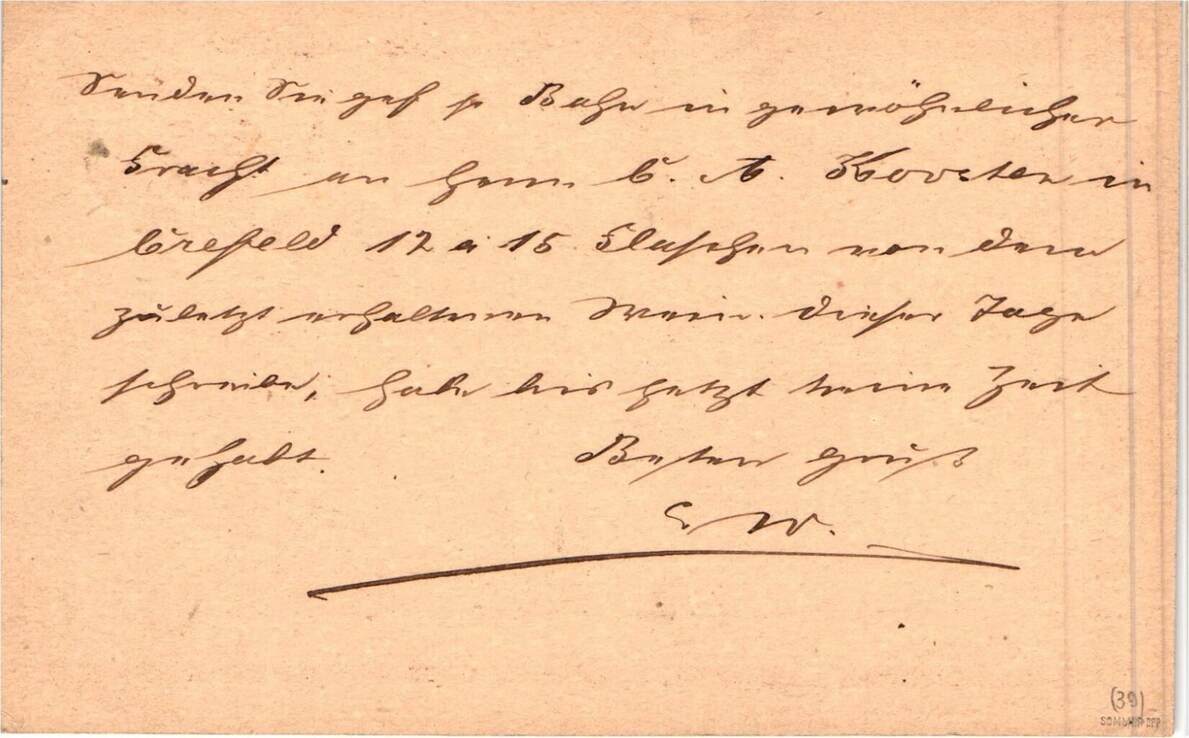 Senden Sie gef p Bahn in gewöhnlicher
Fracht an Herrn C. A. Koorsten in
Crefeld 12 a 15 Flaschen von dem
zuletzt erhaltenen Wein. Dieser Tage
schreibe, habe bis jetzt keine Zeit
gehabt. Besten Gruß
E W.
(39)